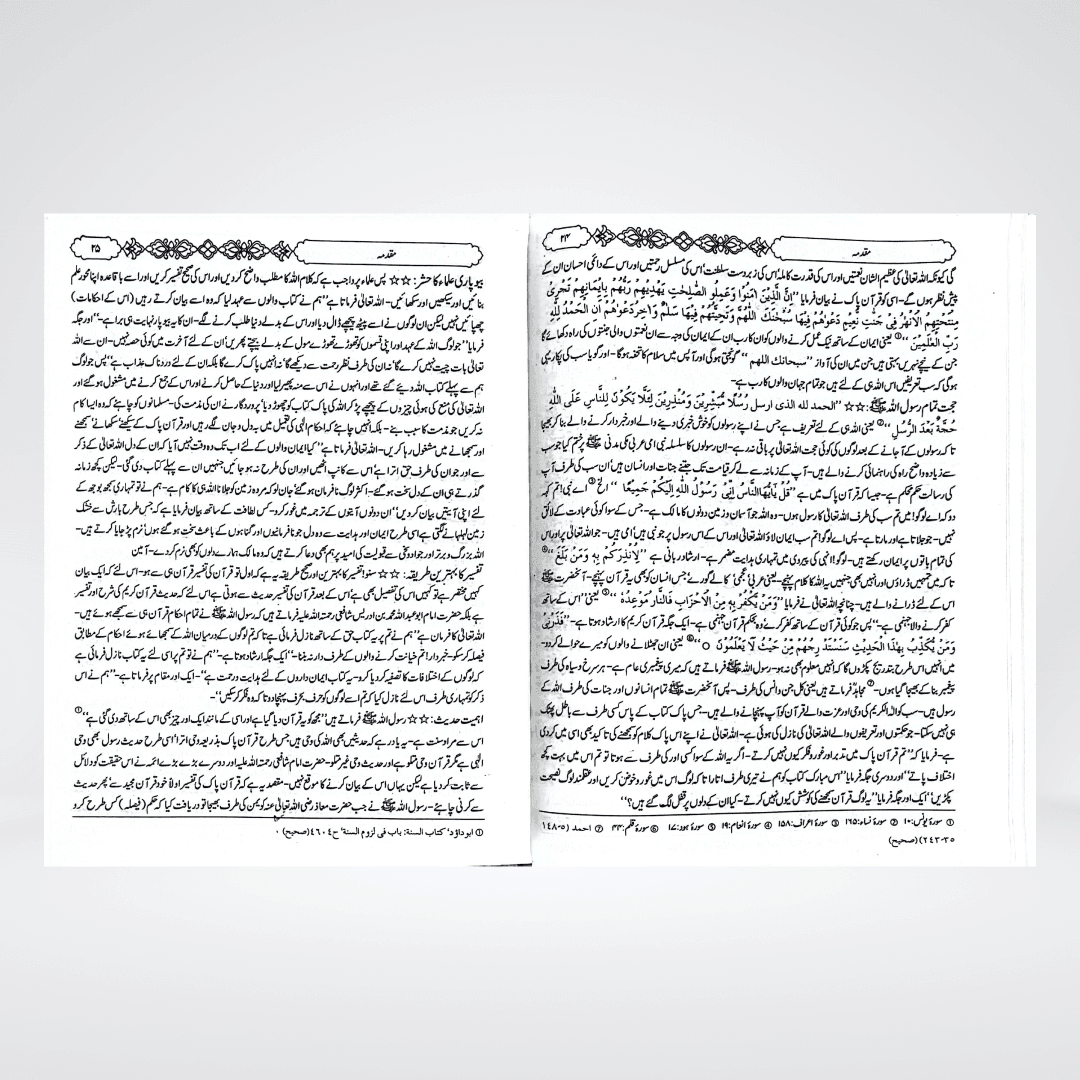 ۲۴
مقدمہ
گی کیونکہ اللہ تعالیٰ کی عظیم الشان نعمتیں اور اس کی قدرت کاملہ اس کی زبردست سلطنت، اس کی مسلسل رحمتیں اور اس کے دائمی احسان ان کے
پیش نظر ہوں گے۔ اسی کو قرآن پاک نے بیان فرمایا ”اِنَّ الَّذِیْنَ اٰمَنُوْا وَعَمِلُوا الصّٰلِحٰتِ یَهْدِیْهِمْ رَبُّهُمْ بِاِیْمَانِهِمْ تَجْرِیْ
مِنْ تَحْتِهِمُ الْاَنْهٰرُ فِیْ جَنّٰتِ نَّعِیْمٍ دَعْوٰهُمْ فِیْهَا سُبْحٰنَكَ اللّٰهُمَّ وَتَحِیَّتُهُمْ فِیْهَا سَلٰمٌ وَاٰخِرُ دَعْوٰهُمْ اَنِ الْحَمْدُ لِلّٰهِ
رَبِّ الْعٰلَمِیْنَ“ ① یعنی ایمان کے ساتھ نیک عمل کرنے والوں کو ان کا رب ان کے ایمان کی وجہ سے ان نعمتوں والی جنتوں کی راہ دکھائے گا
جن کے نیچے نہریں بہتی ہیں جن میں ان کی آواز ”سبحانك اللهم“ گونجتی ہوگی اور آپس میں سلام کا تحفہ ہوگا۔ اور گویا سب کی پکار یہی
ہوگی کہ سب تعریفیں اس اللہ ہی کے لئے ہیں جو تمام جہان والوں کا رب ہے۔
حجت تمام رسول اللہ ﷺ: ☆☆ ”الحمد لله الذی ارسل رُسُلًا مُّبَشِّرِیْنَ وَمُنْذِرِیْنَ لِئَلَّا یَكُوْنَ لِلنَّاسِ عَلَی اللّٰهِ
حُجَّةٌ بَعْدَ الرُّسُلِ“ ② یعنی اللہ ہی کے لئے تعریف ہے جس نے اپنے رسولوں کو خوش خبری دینے والے اور خبردار کرنے والے بنا کر بھیجا
تا کہ رسولوں کے آ جانے کے بعد لوگوں کی کوئی حجت اللہ تعالیٰ پر باقی نہ رہے۔ ان رسولوں کا سلسلہ نبی امی عربی مکی مدنی ﷺ پر ختم کیا جو سب
سے زیادہ واضح راہ کی راہنمائی کرنے والے ہیں۔ آپ کے زمانہ سے لے کر قیامت تک جتنے جنات اور انسان ہیں، ان سب کی طرف آپ
کی رسالت حکم محکم ہے۔ جیسا کہ قرآن پاک میں ہے ”قُلْ یٰاَیُّهَا النَّاسُ اِنِّیْ رَسُوْلُ اللّٰهِ اِلَیْكُمْ جَمِیْعًا“ الخ ③ اے نبی! تم کہہ
دو کہ اے لوگو! میں تم سب کی طرف اللہ تعالیٰ کا رسول ہوں۔ وہ اللہ جو آسمان و زمین دونوں کا مالک ہے۔ جس کے سوا کوئی عبادت کے لائق
نہیں۔ جو جلاتا ہے اور مارتا ہے۔ پس اے لوگو! تم سب ایمان لاؤ اللہ تعالیٰ اور اس کے اس رسول پر جو نبی ہیں، امی ہیں۔ جو اللہ تعالیٰ پر اور اس
کی تمام باتوں پر ایمان رکھتے ہیں۔ لوگو! انہی کی پیروی میں تمہاری ہدایت مضمر ہے۔ ارشاد ربانی ہے ”لِاُنْذِرَكُمْ بِهٖ وَمَنْ بَلَغَ“ ④
تا کہ میں تمہیں ڈراؤں اور انہیں بھی جنہیں یہ اللہ کا کلام پہنچے۔ یعنی عربی، عجمی، کالے، گورے، جس انسان کو بھی یہ قرآن پہنچے۔ آنحضرت ﷺ
اس کے لئے ڈرانے والے ہیں۔ چنانچہ اللہ تعالیٰ نے فرمایا ”وَمَنْ یَّكْفُرْ بِهٖ مِنَ الْاَحْزَابِ فَالنَّارُ مَوْعِدُهٗ“ ⑤ یعنی ”اس کے ساتھ
کفر کرنے والا جہنمی ہے۔“ پس جو کوئی قرآن کے ساتھ کفر کرے وہ بحکم قرآن جہنمی ہے۔ ایک جگہ قرآن کریم کا ارشاد ہوتا ہے۔ ”فَذَرْنِیْ
وَمَنْ یُّكَذِّبُ بِهٰذَا الْحَدِیْثِ سَنَسْتَدْرِجُهُمْ مِّنْ حَیْثُ لَا یَعْلَمُوْنَ ○“ ⑥ یعنی ان جھٹلانے والوں کو میرے حوالے کر دو۔
میں انہیں اس طرح بتدریج پکڑوں گا کہ انہیں معلوم بھی نہ ہو۔ رسول اللہ ﷺ فرماتے ہیں کہ میری پیغمبری عام ہے۔ ہر سرخ و سیاہ کی طرف
پیغمبر بنا کے بھیجا گیا ہوں۔ ⑦ مجاہد فرماتے ہیں یعنی کل جن و انس کی طرف۔ پس آنحضرت ﷺ تمام انسانوں اور جنات کی طرف اللہ کے
رسول ہیں۔ سب کو اللہ الکریم کی وحی اور عزت والے قرآن کو آپ پہنچانے والے ہیں۔ جس پاک کتاب کے پاس کسی طرف سے باطل پھٹک
ہی نہیں سکتا۔ جو حکمتوں اور تعریفوں والے اللہ تعالیٰ کی نازل کی ہوئی ہے۔ اللہ تعالیٰ نے اپنے اس پاک کلام کو سمجھنے کی تاکید بھی اسی میں کر دی
ہے۔ فرمایا کہ ”تم قرآن پاک میں تدبر اور غور و فکر کیوں نہیں کرتے۔ اگر یہ اللہ کے سوا کسی اور کی طرف سے ہوتا تو تم اس میں بہت کچھ
اختلاف پاتے“ اور دوسری جگہ فرمایا ”اس مبارک کتاب کو ہم نے تیری طرف اتارا تا کہ لوگ اس میں غور و خوض کریں اور عقلمند لوگ نصیحت
پکڑیں“ ایک اور جگہ فرمایا ”یہ لوگ قرآن سمجھنے کی کوشش کیوں نہیں کرتے۔ کیا ان کے دلوں پر قفل لگ گئے ہیں؟“
① سورۂ یونس: ۱۰ ② سورۂ نساء: ۱۶۵ ③ سورۂ اعراف: ۱۵۸ ④ سورۂ انعام: ۱۹ ⑤ سورۂ ہود: ۱۷ ⑥ سورۂ قلم: ۴۴ ⑦ احمد (۵۔۱۴۸
۳۵۔۲۴۳) (صحیح)
۲۵
مقدمہ
بیوپاری علماء کا حشر: ☆☆ پس علماء پر واجب ہے کہ کلام اللہ کا مطلب واضح کر دیں اور اس کی صحیح تفسیر کریں اور اسے باقاعدہ اپنا محور علم
بنائیں اور سیکھیں اور سکھائیں۔ اللہ تعالیٰ فرماتا ہے ”ہم نے کتاب والوں سے عہد لیا کہ وہ اسے بیان کرتے رہیں (اس کے احکامات)
چھپائیں نہیں لیکن ان لوگوں نے اسے پیٹھ پیچھے ڈال دیا اور اس کے بدلے دنیا طلب کرنے لگے۔ ان کا یہ بیوپار نہایت ہی برا ہے۔“ اور جگہ
فرمایا ”جو لوگ اللہ کے عہد اور اپنی قسموں کو تھوڑے تھوڑے مول کے بدلے بیچتے پھریں، ان کے لئے آخرت میں کوئی حصہ نہیں۔ ان سے اللہ
تعالیٰ بات چیت نہیں کرے گا، نہ ان کی طرف نظر رحمت سے دیکھے گا، نہ انہیں پاک کرے گا بلکہ ان کے لئے دردناک عذاب ہے“ پس جو لوگ
ہم سے پہلے کتاب اللہ دیئے گئے تھے اور انہوں نے اس سے منہ پھیر لیا اور دنیا کے حاصل کرنے اور اس کے جمع کرنے میں مشغول ہو گئے اور
اللہ تعالیٰ کی منع کی ہوئی چیزوں کے پیچھے پڑ کر اللہ کی پاک کتاب کو چھوڑ دیا، پروردگار نے ان کی مذمت کی۔ مسلمانوں کو چاہئے کہ وہ ایسا کام
نہ کریں جو مذمت کا سبب بنے۔ بلکہ انہیں چاہئے کہ احکام الٰہی کی تعمیل میں بہ دل و جان لگے رہیں اور قرآن پاک کے سیکھنے سکھانے، سمجھنے
اور سمجھانے میں مشغول رہا کریں۔ اللہ تعالیٰ فرماتا ہے ”کیا ایمان والوں کے لئے اب تک وہ وقت نہیں آیا کہ ان کے دل اللہ تعالیٰ کے ذکر
سے اور جو ان کی طرف حق اترا ہے، اس سے کانپ اٹھیں اور ان کی طرح نہ ہو جائیں جنہیں ان سے پہلے کتاب دی گئی۔ لیکن کچھ زمانہ
گذرتے ہی ان کے دل سخت ہو گئے۔ اکثر لوگ نافرمان ہو گئے، جان لو کہ مردہ زمین کو جلانا اللہ ہی کا کام ہے۔ ہم نے تو تمہاری سمجھ بوجھ کے
لئے اپنی آیتیں بیان کر دیں“ ان دونوں آیتوں کے ترجمہ میں غور کرو۔ کس لطافت کے ساتھ بیان فرمایا ہے کہ جس طرح بارش سے خشک
زمین لہلہانے لگتی ہے اسی طرح ایمان اور ہدایت سے وہ دل جو نافرمانیوں اور گناہوں کے باعث سخت ہو گئے ہوں، نرم پڑ جایا کرتے ہیں۔
اللہ بزرگ و برتر اور جواد و غنی سے قبولیت کی امید پر ہم بھی دعا کرتے ہیں کہ وہ مالک ہمارے دلوں کو بھی نرم کر دے۔ آمین
تفسیر کا بہترین طریقہ: ☆☆ سنو! تفسیر کا بہترین اور صحیح طریقہ یہ ہے کہ اول تو قرآن کی تفسیر قرآن ہی سے ہو۔ اس لئے کہ ایک بیان
کہیں مختصر ہے تو کہیں اس کی تفصیل بھی ہے، اس کے بعد قرآن کی تفسیر حدیث سے ہوتی ہے اس لئے کہ حدیث قرآن کریم کی شرح اور تفسیر
ہے بلکہ حضرت امام ابو عبداللہ محمد بن ادریس شافعی رحمۃ اللہ علیہ فرماتے ہیں کہ رسول اللہ ﷺ نے تمام احکام قرآن ہی سے سمجھے ہوئے ہیں۔
اللہ تعالیٰ کا فرمان ہے ”ہم نے تم پر یہ کتاب حق کے ساتھ نازل فرمائی ہے تا کہ تم لوگوں کے درمیان اللہ کے سمجھائے ہوئے احکام کے مطابق
فیصلہ کر سکو۔ خبردار! تم خیانت کرنے والوں کے طرف دار نہ بننا۔“ ایک جگہ ارشاد ہوتا ہے۔ ”ہم نے تم پر اسی لئے یہ کتاب نازل فرمائی ہے
کہ لوگوں کے اختلافات کا تصفیہ کر دیا کرو۔ یہ کتاب ایمان داروں کے لئے ہدایت و رحمت ہے“۔ ایک اور مقام پر فرماتا ہے۔ ”ہم نے اس
ذکر کو تمہاری طرف اس لئے نازل کیا کہ تم اسے لوگوں کو حرف بحرف پہنچا دو تا کہ وہ فکر کر سکیں“۔
اہمیت حدیث: ☆☆ رسول اللہ ﷺ فرماتے ہیں ”مجھ کو یہ قرآن دیا گیا ہے اور اسی کے مانند ایک اور چیز بھی اس کے ساتھ دی گئی ہے“ ①
اس سے مراد سنت ہے۔ یہ یاد رہے کہ حدیثیں بھی اللہ کی وحی ہیں جس طرح قرآن پاک بذریعہ وحی اترا، اسی طرح حدیث رسول بھی وحی
الٰہی ہے مگر قرآن وحی متلو ہے اور حدیث وحی غیر متلو۔ حضرت امام شافعی رحمۃ اللہ علیہ اور دوسرے بڑے بڑے ائمہ نے اس حقیقت کو دلائل
سے ثابت کر دیا ہے لیکن یہاں اس کے بیان کرنے کا موقع نہیں۔ مقصد یہ ہے کہ قرآن پاک کی تفسیر اولاً خود قرآن مجید سے، پھر حدیث
سے کرنی چاہئے۔ رسول اللہ ﷺ نے جب حضرت معاذ رضی اللہ تعالیٰ عنہ کو یمن کی طرف بھیجا تو دریافت کیا کہ حکم (فیصلہ) کس طرح کرو
① ابوداؤد، کتاب السنة: باب فی لزوم السنة، ح ۴۶۰۴ (صحیح)۔